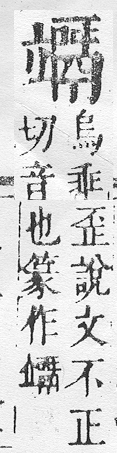 竵
烏乖
切音
歪說文不正
也篆作